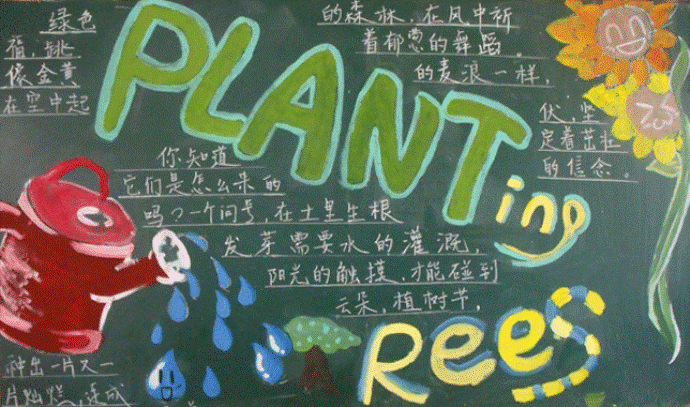 绿色 的森林,在风中祈
福,跳 着郁葱的舞蹈。
像金黄 的麦浪一样,
在空中起 伏,坚
定着茁壮
的信念。
PLANTing
Rees
你知道
它们是怎么来的
吗?一个问号,在土里生根
发芽需要水的灌溉,
阳光的触摸,才能碰到
云朵,植树节,
种出一片又一
片灿烂,